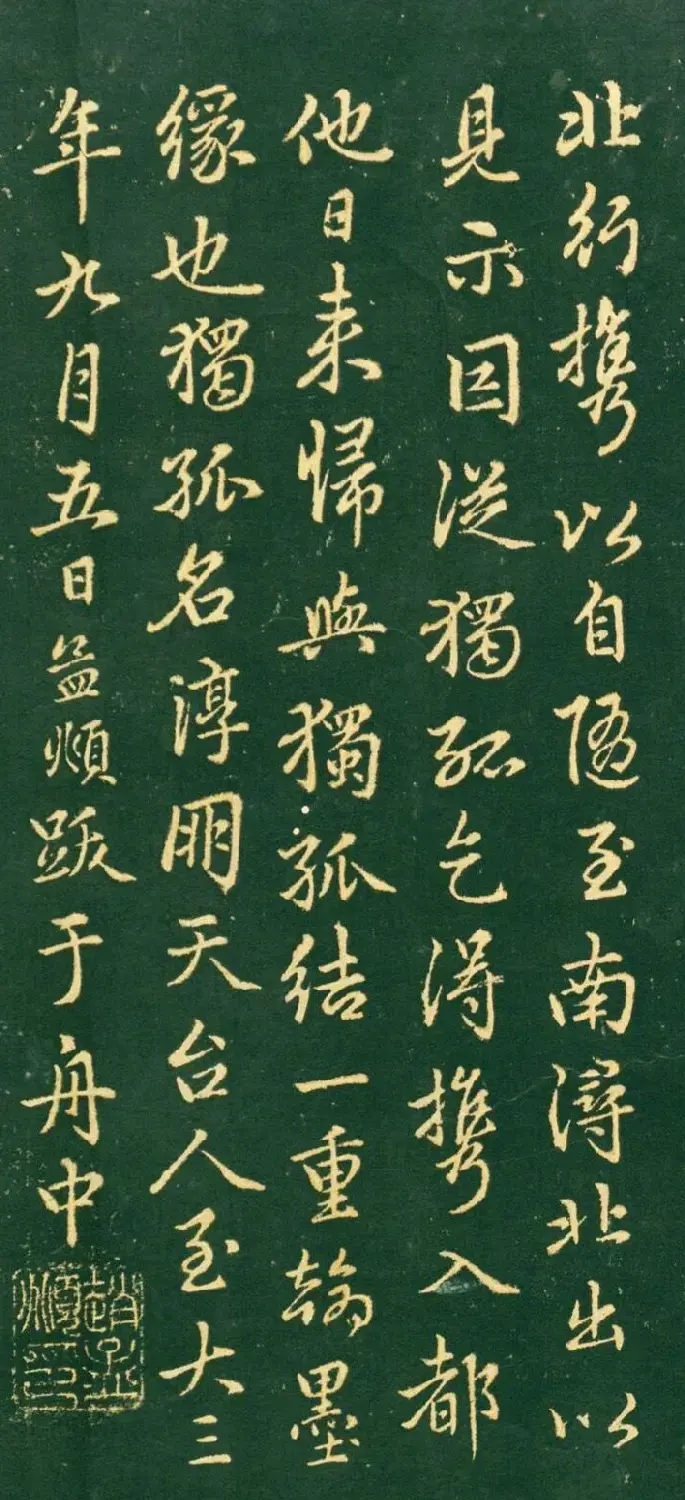 北行携以自随至南潯北出以
見示因從獨孤乞得携入都
他日来歸與獨孤結一重翰墨
緣也獨孤名淳朋天台人至大三
年九月五日孟頫跋于舟中
趙孟頫印